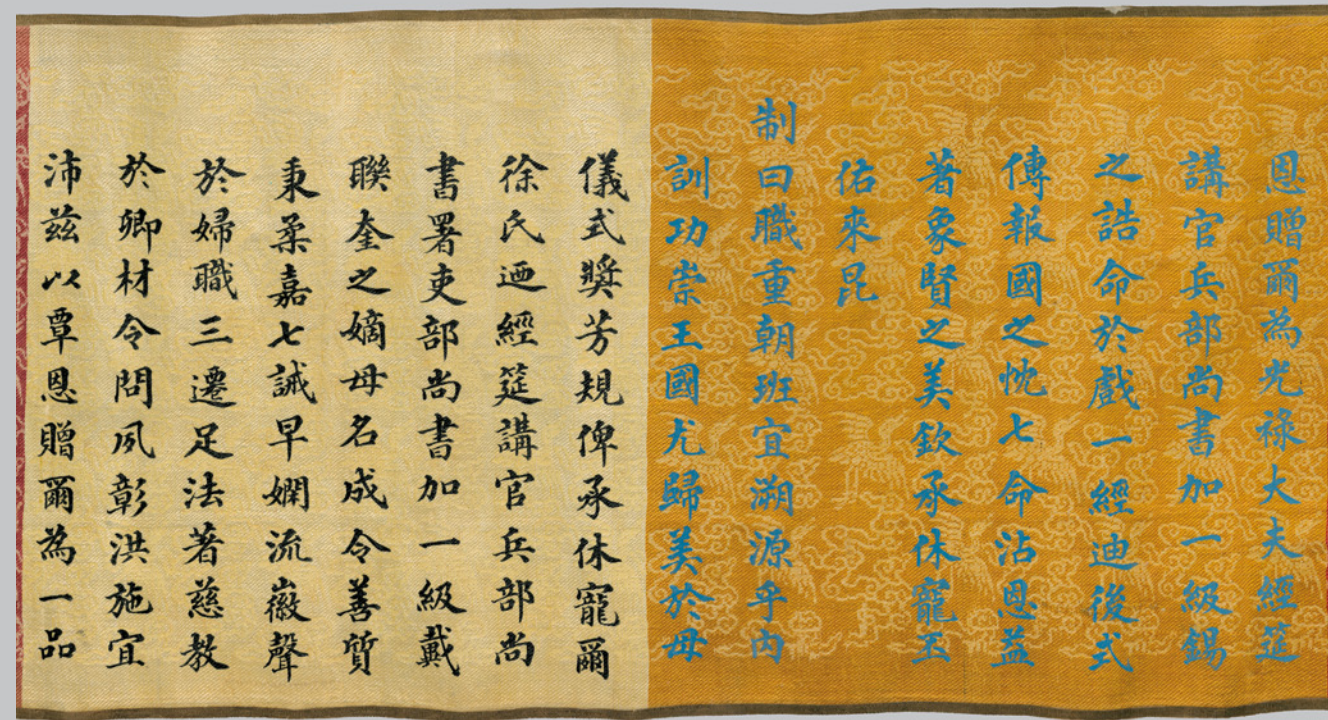 恩贈爾為光祿大夫經筵
講官兵部尚書加一級錫
之誥命於戲一經迪後式
傳報國之忱七命沾恩益
著象賢之美欽承休寵丕
佑來昆
制曰職重朝班宜溯源乎內
訓功崇王國尤歸美於母
儀式獎芳規俾承休寵爾
徐氏迺經筵講官兵部尚
書署吏部尚書加一級戴
聯奎之嫡母名成令善質
秉柔嘉七誡早嫻流徽聲
於婦職三遷足法著慈教
於卿材令問夙彰洪施宜
沛茲以覃恩贈爾為一品